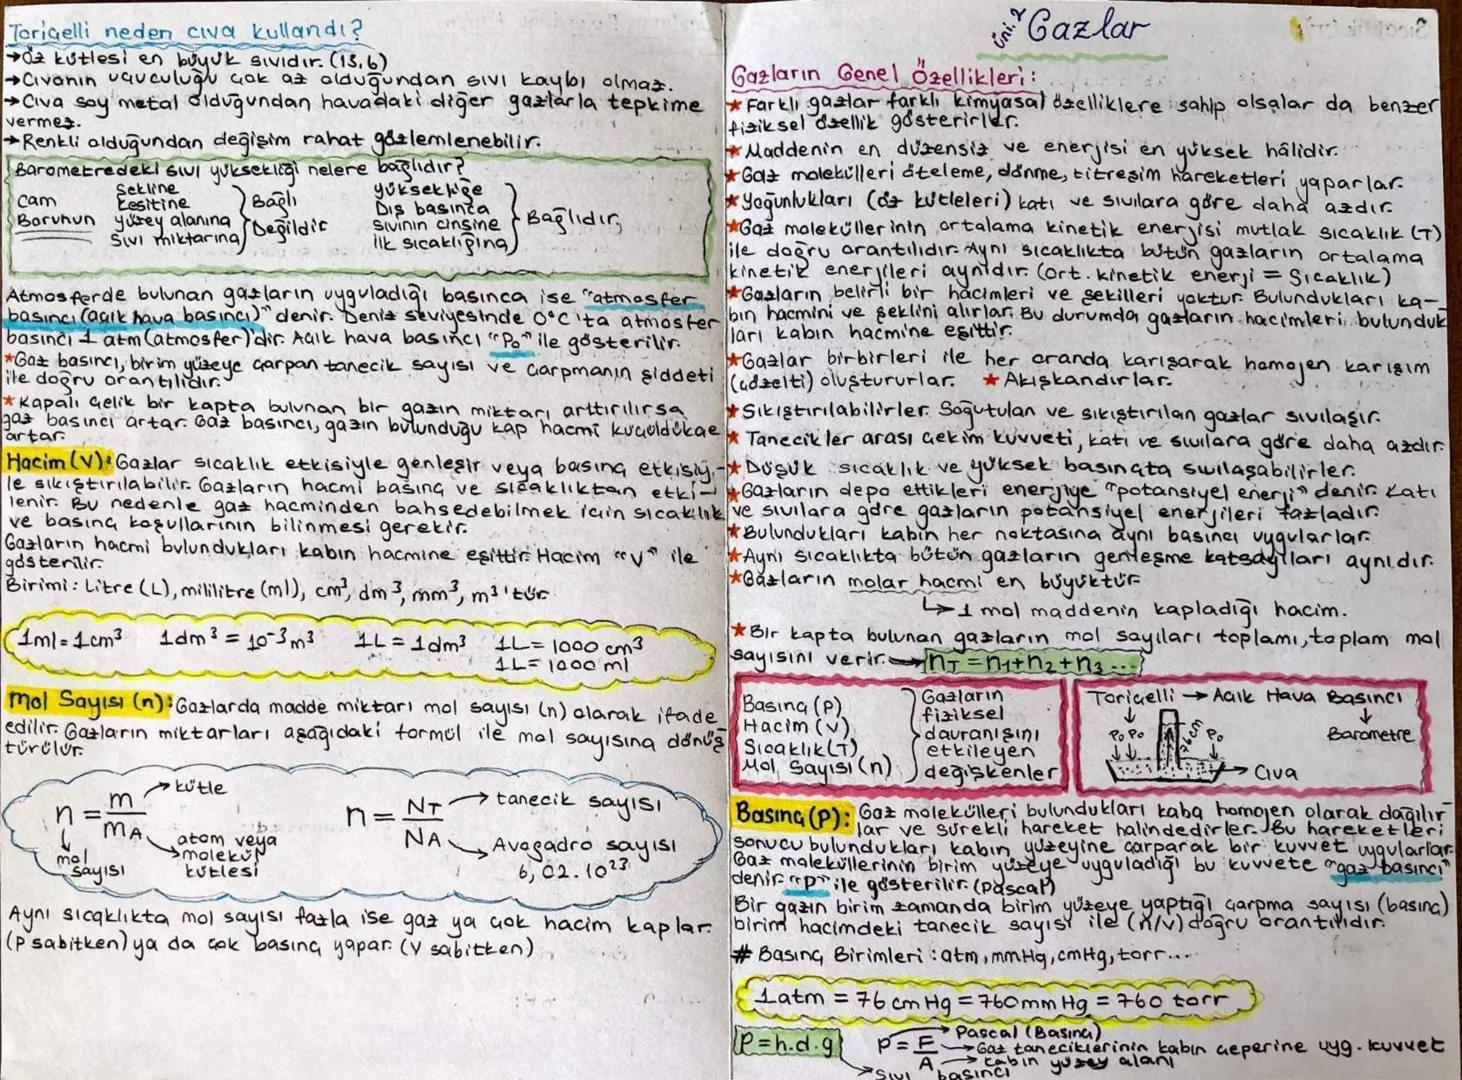 Toriçelli neden cıva kullandı?
→Öz kütlesi en büyük sıvıdır. (13,6)
→Cıvanın uçuculuğu çok az olduğundan sıvı kaybı olmaz.
→Cıva soy metal olduğundan havadaki diğer gazlarla tepkime
vermez.
→Renkli olduğundan değişim rahat gözlemlenebilir.
Barometredeki sıvı yüksekliği nelere bağlıdır?
Cam Borunun
Şekline
Kesitine
yüzey alanına
Sıvı miktarına
Bağlı Değildir
yüksekliğe
Dış basınca
Sıvının cinsine
İlk sıcaklığına
Bağlıdır.
Atmosferde bulunan gazların uyguladığı basınca ise "atmosfer
basıncı (açık hava basıncı)" denir. Deniz seviyesinde 0°C'ta atmosfer
basıncı 1 atm (atmosfer)'dir. Açık hava basıncı "P₀" ile gösterilir.
*Gaz basıncı, birim yüzeye çarpan tanecik sayısı ve çarpmanın şiddeti
ile doğru orantılıdır.
*Kapalı çelik bir kapta bulunan bir gazın miktarı arttırılırsa
gaz basıncı artar. Gaz basıncı, gazın bulunduğu kap hacmi küçüldükçe
artar.
Hacim (V): Gazlar sıcaklık etkisiyle genleşir veya basınç etkisiy-
le sıkıştırılabilir. Gazların hacmi basınç ve sıcaklıktan etki-
lenir. Bu nedenle gaz hacminden bahsedebilmek için sıcaklık
ve basınç koşullarının bilinmesi gerekir.
Gazların hacmi bulundukları kabın hacmine eşittir. Hacim "V" ile
gösterilir.
Birimi: Litre (L), mililitre (ml), cm³, dm³, mm³, m³'tür.
1ml = 1cm³ 1dm³ = 10⁻³m³ 1L = 1dm³ 1L = 1000 cm³
1L = 1000 ml
Mol Sayısı (n): Gazlarda madde miktarı mol sayısı (n) olarak ifade
edilir. Gazların miktarları aşağıdaki formül ile mol sayısına dönüş
türülür.
n = m/mA
→ kütle
mol sayısı
atom veya molekül kütlesi
n = NT/NA
→ tanecik sayısı
Avogadro sayısı
6,02.10²³
Aynı sıcaklıkta mol sayısı fazla ise gaz ya çok hacim kaplar.
(P sabitken) ya da çok basınç yapar. (V sabitken)
üni.2 Gazlar
Gazların Genel Özellikleri:
*Farklı gazlar farklı kimyasal özelliklere sahip olsalar da benzer
fiziksel özellik gösterirler.
*Maddenin en düzensiz ve enerjisi en yüksek hâlidir.
*Gaz molekülleri öteleme, dönme, titreşim hareketleri yaparlar.
*Yoğunlukları (öz kütleleri) katı ve sıvılara göre daha azdır.
*Gaz moleküllerinin ortalama kinetik enerjisi mutlak sıcaklık (T)
ile doğru orantılıdır. Aynı sıcaklıkta bütün gazların ortalama
kinetik enerjileri aynıdır. (Ort. kinetik enerji = Sıcaklık)
*Gazların belirli bir hacimleri ve şekilleri yoktur. Bulundukları ka-
bın hacmini ve şeklini alırlar. Bu durumda gazların hacimleri, bulunduk
ları kabın hacmine eşittir.
*Gazlar birbirleri ile her oranda karışarak homojen karışım
(çözelti) oluştururlar. *Akışkandırlar.
*Sıkıştırılabilirler. Soğutulan ve sıkıştırılan gazlar sıvılaşır.
*Tanecikler arası çekim kuvveti, katı ve sıvılara göre daha azdır.
*Düşük sıcaklık ve yüksek basınçta sıvılaşabilirler.
*Gazların depo ettikleri enerjiye "potansiyel enerji" denir. Katı
ve sıvılara göre gazların potansiyel enerjileri fazladır.
*Bulundukları kabın her noktasına aynı basıncı uygularlar.
*Aynı sıcaklıkta bütün gazların genleşme katsayıları aynıdır.
*Gazların molar hacmi en büyüktür
↳ 1 mol maddenin kapladığı hacim.
*Bir kapta bulunan gazların mol sayıları toplamı, toplam mol
sayısını verir. → nT = n1+n2+n3...
Basınç (P)
Hacim (V)
Sıcaklık (T)
Mol Sayısı (n)
Gazların
fiziksel
davranışını
etkileyen
değişkenler
Toriçelli → Açık Hava Basıncı
↓
Barometre
P₀ P₀ 76cm P₀
→ Cıva
Basınç (P): Gaz molekülleri bulundukları kaba homojen olarak dağılır
lar ve sürekli hareket halindedirler. Bu hareketleri
sonucu bulundukları kabın yüzeyine çarparak bir kuvvet uygularlar.
Gaz moleküllerinin birim yüzeye uyguladığı bu kuvvete "gaz basıncı"
denir. "P" ile gösterilir. (Pascal)
Bir gazın birim zamanda birim yüzeye yaptığı çarpma sayısı (basınç)
birim hacimdeki tanecik sayısı ile (n/v) doğru orantılıdır.
# Basınç Birimleri: atm, mmHg, cmHg, torr...
1atm = 76 cm Hg = 760 mm Hg = 760 torr
P = h.d.g
Sıvı basıncı
P = F/A
→ Pascal (Basınç)
→ Gaz taneciklerinin kabın çeperine uyg. kuvvet
→ kabın yüzey alanı